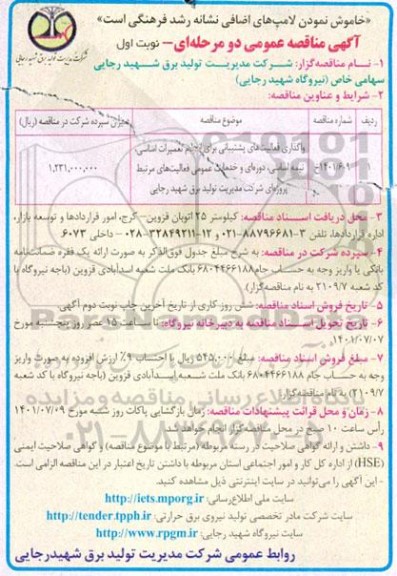 «خاموش نمودن لامپ‌های اضافی نشانه رشد فرهنگی است»
آگهی مناقصه عمومی دو مرحله‌ای – نوبت اول
شرکت مدیریت تولید برق شهید رجایی
۱- نام مناقصه‌گزار: شرکت مدیریت تولید برق شهید رجایی
سهامی خاص (نیروگاه شهید رجایی)
۲- شرایط و عناوین مناقصه:
ردیف شماره مناقصه موضوع مناقصه میزان سپرده شرکت در مناقصه (ریال)
واگذاری فعالیت‌های پشتیبانی برای انجام تعمیرات اساسی،
۱ نیمه اساسی، دوره‌ای و خدمات عمومی فعالیت‌های مرتبط ۱,۲۳۱,۰۰۰,۰۰۰
پروژه‌ای شرکت مدیریت تولید برق شهید رجایی
۳- محل دریافت اسناد مناقصه: کیلومتر ۲۵ اتوبان قزوین–کرج، امور قراردادها و توسعه بازار،
اداره قراردادها، تلفن ۳-۸۸۷۹۶۶۸۱-۰۲۱ و ۱۲-۳۲۸۴۹۲۱۱-۰۲۸ – داخلی ۶۰۷۳
۴- سپرده شرکت در مناقصه: به شرح مبلغ جدول فوق‌الذکر به صورت ارائه یک فقره ضمانت‌نامه
بانکی یا واریز وجه به حساب جام ۶۸۰۴۴۶۶۱۸۸ بانک ملت شعبه اسدآبادی قزوین (باجه نیروگاه با
کد شعبه ۲۱۰۹/۷ به نام مناقصه‌گزار)
۵- تاریخ فروش اسناد مناقصه: شش روز کاری از تاریخ آخرین چاپ نوبت دوم آگهی.
۶- تاریخ تحویل اسناد مناقصه به دبیرخانه نیروگاه: تا ساعت ۱۵ عصر روز پنجشنبه مورخ
۱۴۰۱/۰۷/۰۷
۷- مبلغ فروش اسناد مناقصه: مبلغ ۵۴۵,۰۰۰ ریال با احتساب ۹٪ ارزش افزوده به صورت واریز
وجه به حساب جام ۶۸۰۴۴۶۶۱۸۸ بانک ملت شعبه اسدآبادی قزوین (باجه نیروگاه با کد شعبه
۲۱۰۹/۷) به نام مناقصه‌گزار
۸- زمان و محل قرائت پیشنهادات مناقصه: زمان بازگشایی پاکات روز شنبه مورخ ۱۴۰۱/۰۷/۰۹
رأس ساعت ۱۰ صبح در محل مناقصه‌گزار انجام خواهد شد.
۹- داشتن و ارائه گواهی صلاحیت در رسته مربوطه (مرتبط با موضوع مناقصه) و گواهی صلاحیت ایمنی
(HSE) از اداره کل کار و امور اجتماعی استان مربوطه با داشتن تاریخ اعتبار در این مناقصه الزامی است.
- این آگهی را می‌توانید در سایت اینترنتی ذیل مشاهده کنید.
سایت ملی اطلاع‌رسانی: http://iets.mporg.ir
سایت شرکت مادر تخصصی تولید نیروی برق حرارتی: http://tender.tpph.ir
سایت نیروگاه شهید رجایی: http://www.rpgm.ir
روابط عمومی شرکت مدیریت تولید برق شهیدرجایی